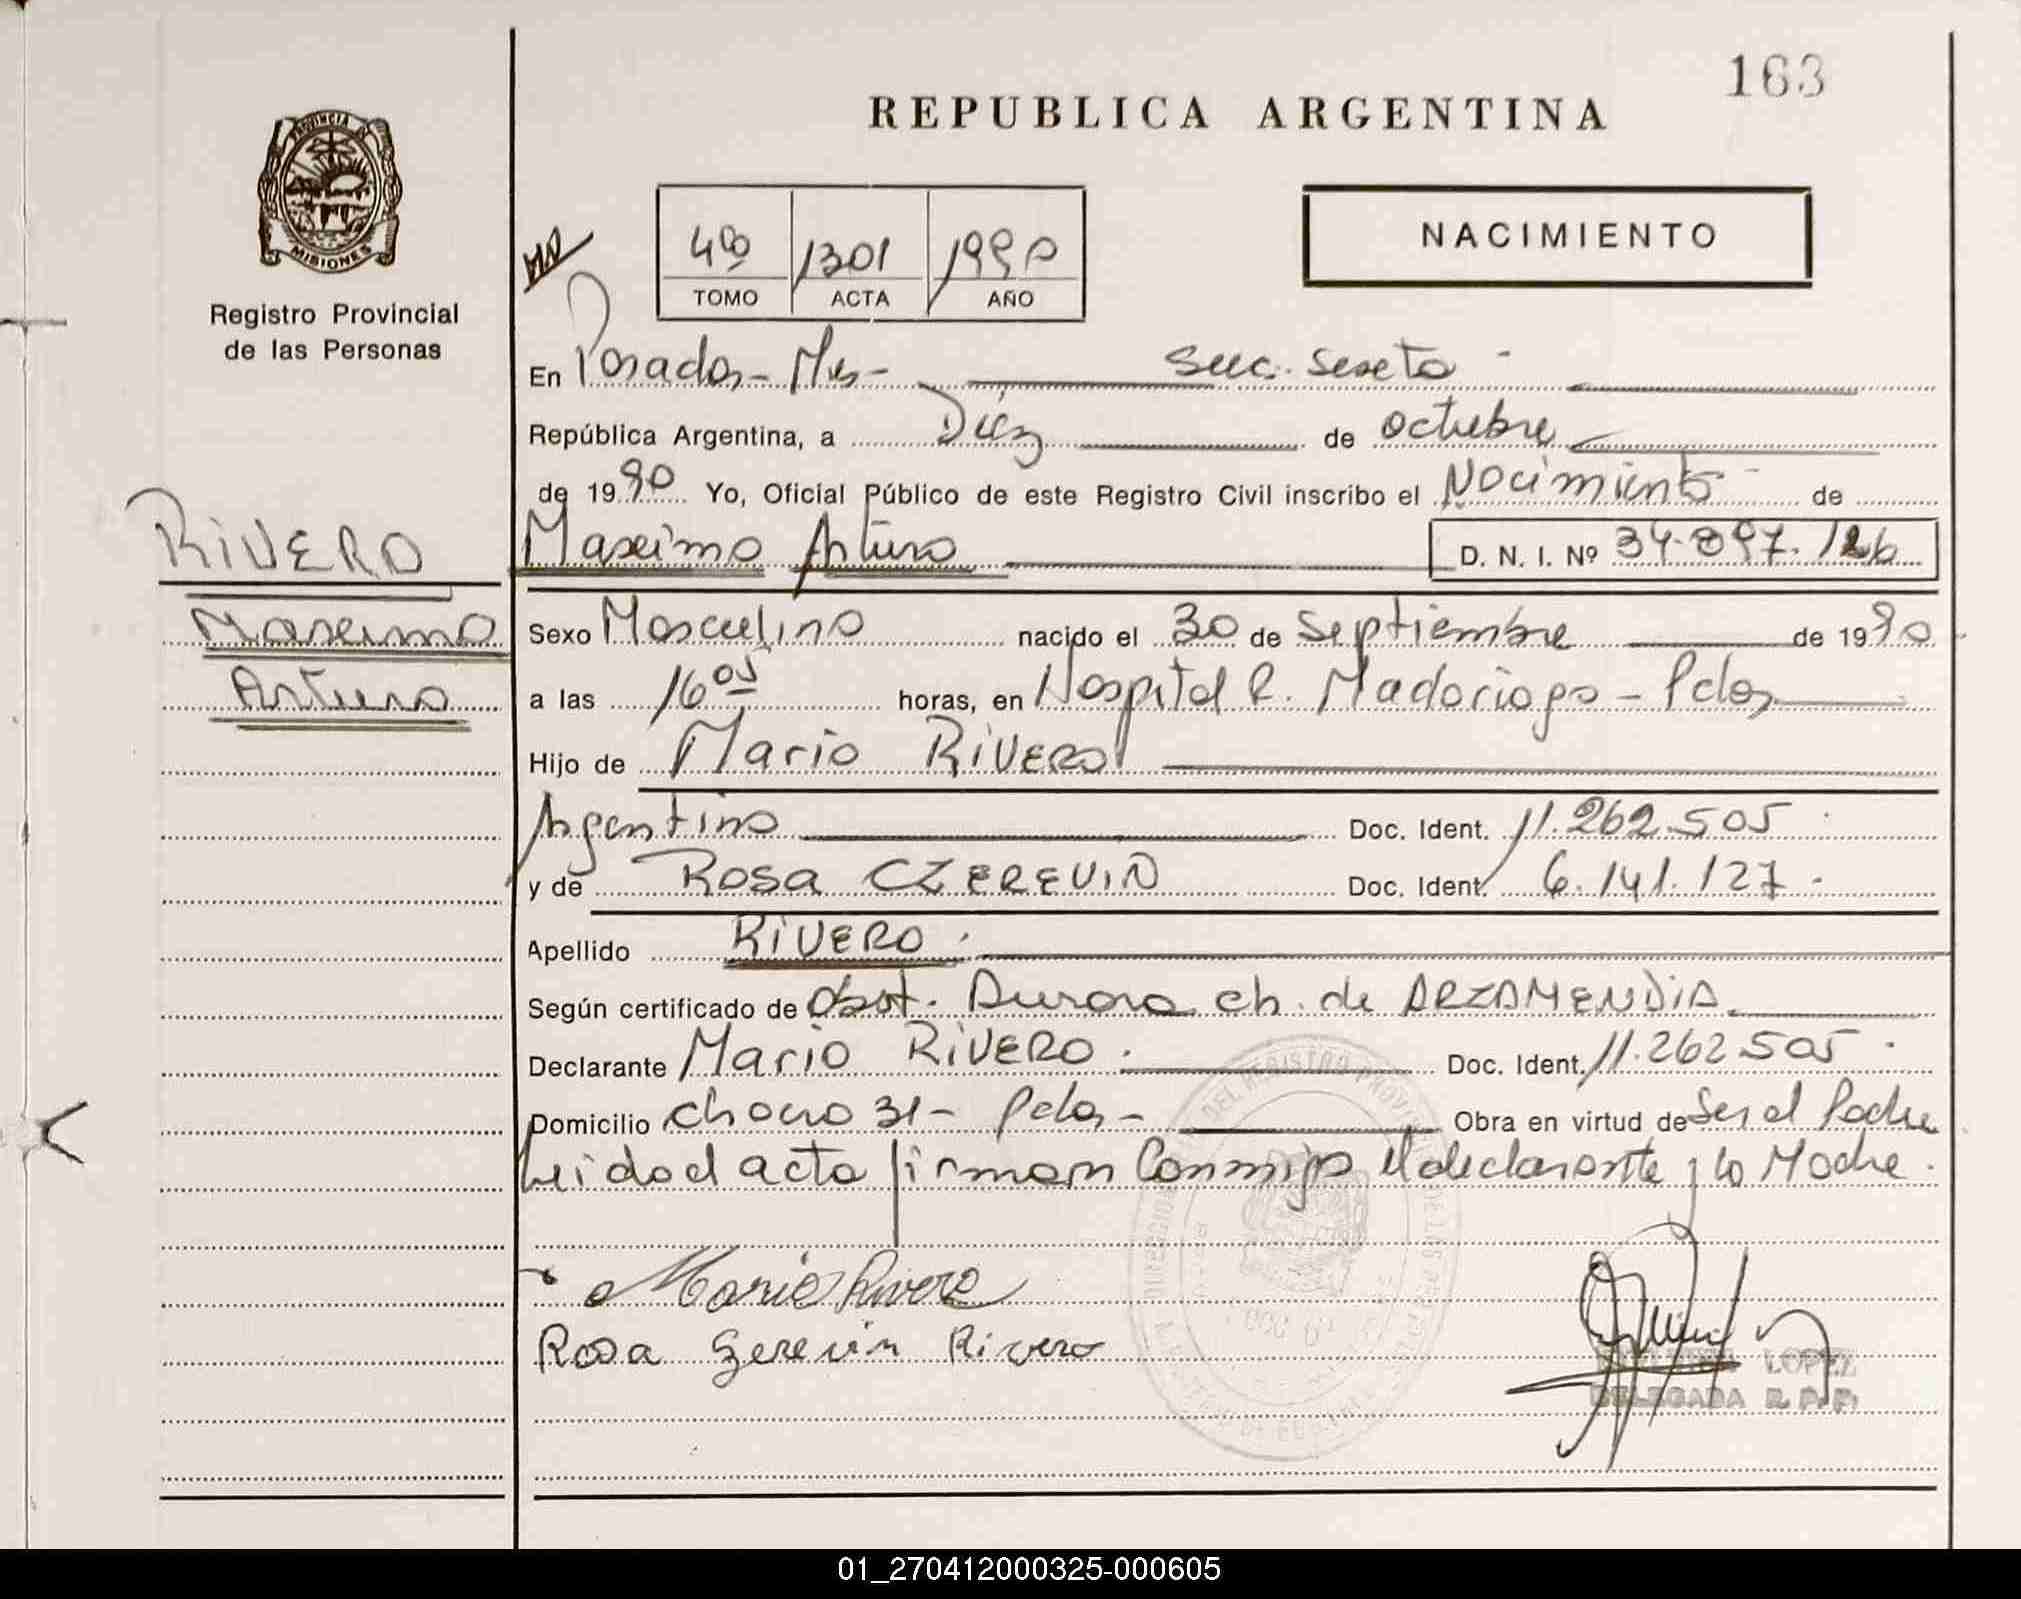 163
REPUBLICA ARGENTINA
PROVINCIA DE
MISIONES
Registro Provincial
de las Personas
4º 1301 1990
TOMO ACTA AÑO
NACIMIENTO
En Posadas - Mis - Secc. Sexta -
República Argentina, a Diez de octubre
de 1990 Yo, Oficial Público de este Registro Civil inscribo el Nacimiento de
RIVERO
Maximo Arturo D. N. I. Nº 34.897.126
Maximo
Arturo
Sexo Masculino nacido el 30 de Septiembre de 1990
a las 16 05 horas, en Hospital R. Madariaga - Pdas
Hijo de Mario RIVERO
Argentino Doc. Ident. 11.262.505
y de Rosa CZEREVIN Doc. Ident. 6.141.127 -
Apellido RIVERO.
Según certificado de Obst. Aurora Ch. de ARZAMENDIA
Declarante Mario RIVERO. Doc. Ident. 11.262505.
Domicilio Chacra 31 - Pdas - Obra en virtud de Ser el Padre
Leida el acta firman Conmigo el declarante y la Madre.
Mario Rivero
Rosa Rivero
LOPEZ
DELEGADA R.P.P.
01_270412000325-000605